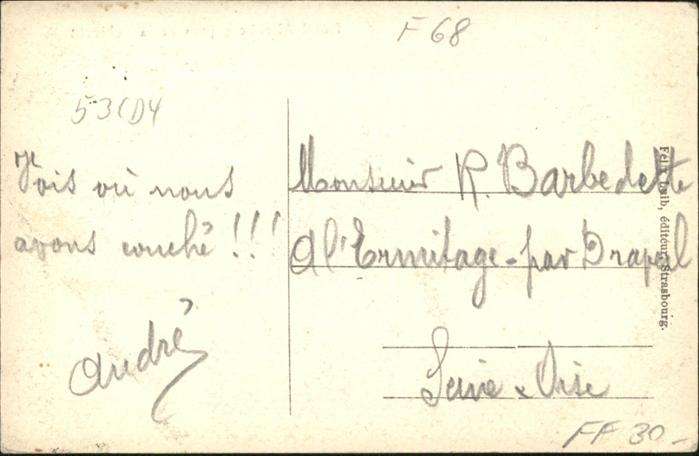 F 68
53(D4
Vois où nous
avons couché !!!
André
Monsieur R. Barbedette
à l'Ermitage - par Draveil
Seine & Oise
Félix Luib, éditeur, Strasbourg.
FF 30 -